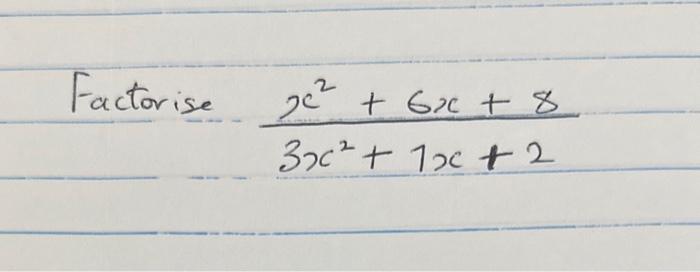 Factorise x² + 6x + 8
3x² + 7x + 2